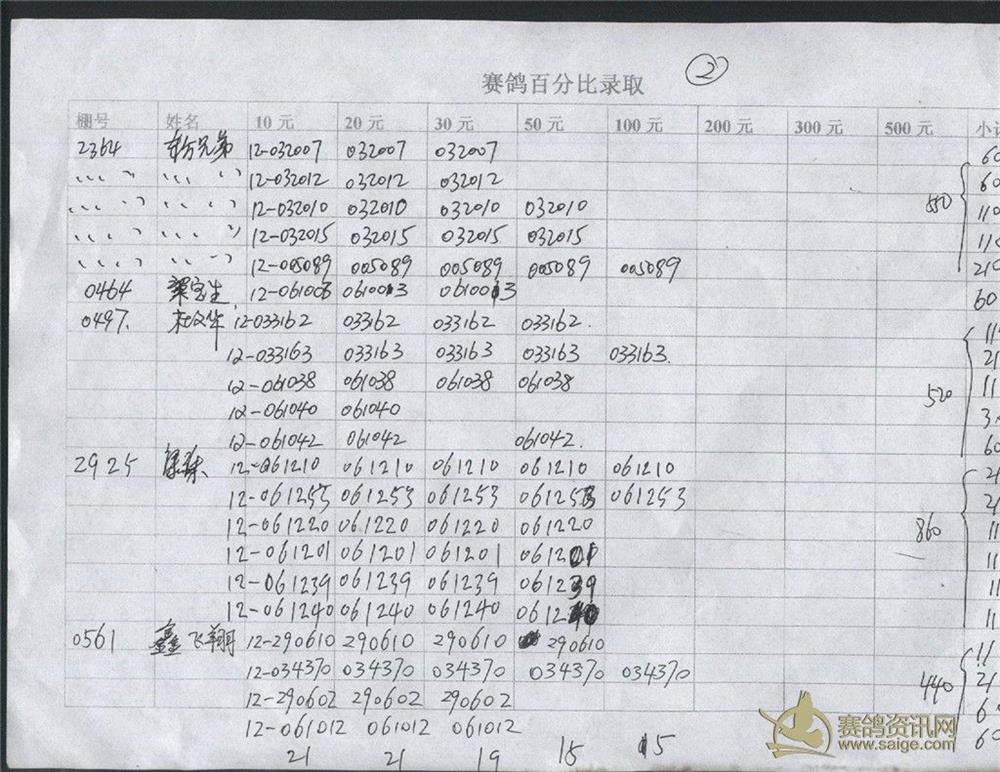 赛鸽百分比录取 ②
棚号 姓名 10元 20元 30元 50元 100元 200元 300元 500元 小计
2364 东方兄弟 12-032007 032007 032007 60
12-032012 032012 032012 60
12-032010 032010 032010 032010 550 110
12-032015 032015 032015 032015 110
12-005089 005089 005089 005089 005089 210
0464 梁宝生 12-061003 0610013 0610013 60
0497. 杜文华 12-033162 033162 033162 033162. 11
12-033163 033163 033163 033163 033163. 21
12-061038 061038 061038 061038 11
12-061040 061040 520 3
12-061042 061042 061042. 60
2925 12-061210 061210 061210 061210 061210 2
12-061253 061253 061253 061253 061253 2
12-061220 061220 061220 061220 860 11
12-061201 061201 061201 061201 11
12-061239 061239 061239 061239 11
12-061240 061240 061240 061240 11
0561 鑫飞翔 12-290610 290610 290610 290610 11
12-034370 034370 034370 034370 034370 21
12-290602 290602 290602 440 6
12-061012 061012 061012 60
21 21 19 15 5
赛鸽资讯网
www.saige.com